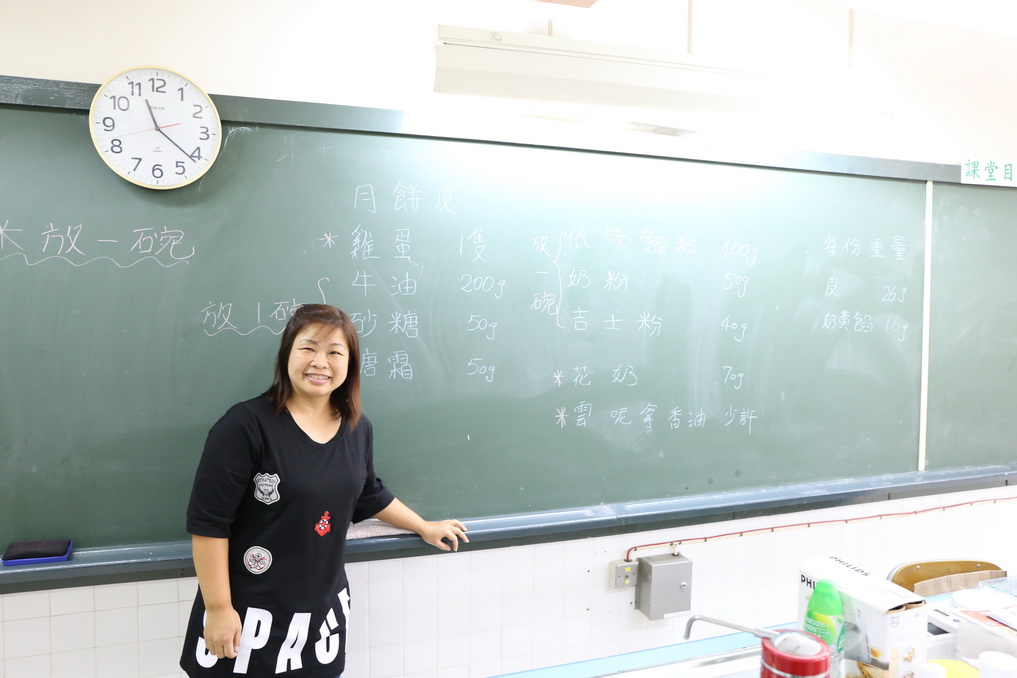 11 12 1
10 2
9 3
8 4
7 6 5
課堂目
月餅皮
* 放一碗
* 雞蛋 1隻
牛油 200g
放1碗
砂糖 50g
糖霜 50g
放一碗
低筋麵粉 400g
奶粉 50g
吉士粉 40g
* 花奶 70g
* 雲呢拿香油 少許
每份重量
皮 26g
奶黃餡 15g
SPACE
PHILIPS